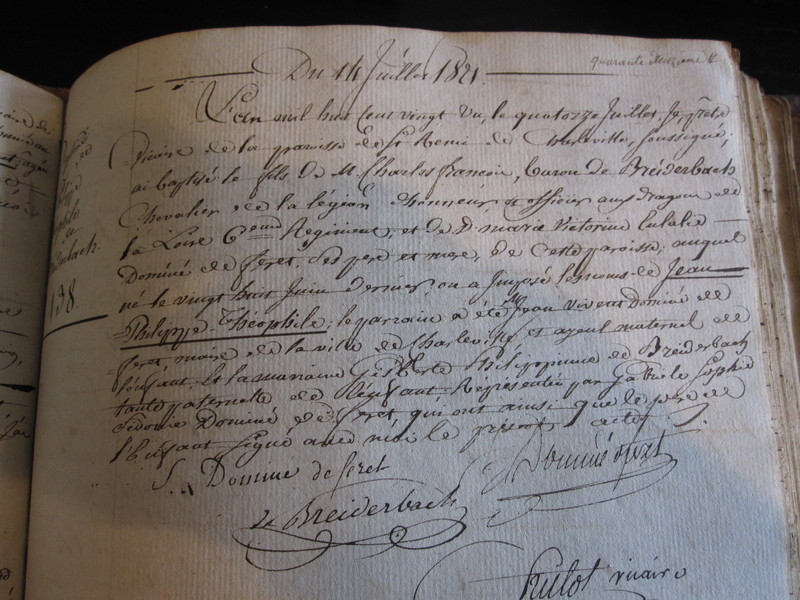 quarante
Du 14 Juillet 1821.
L'an mil huit Cens vingt un, le quatorze Juillet, Je, prêtre
vicaire de la paroisse de St Remi de Charleville, soussigné,
ai baptisé le fils de M. Charles francois, baron de Breiderbach
Chevalier de la légion d'honneur, officier aux dragons de
la Loire 6eme Régiment, et de D. marie Victorine Eulalie
Dominé de feret, ses pere et mere, de cette paroisse; auquel
né le vingt huit Juin dernier, on a Imposé les noms de Jean
Philippe Théophile; le parrain a été Mr Jean Vivent Dominé de
feret, maire de la ville de Charleville, et ayeul maternel de
l'enfant. Et la maraine Philippine de Breiderbach
tante paternelle de l'enfant. Représentée par Gabriele Sophie
Dominé de feret, qui ont ainsi que le pere de
l'Enfant signé avec moi le présent acte.
138.
S. Domine de feret
Dominé
de Breiderbach
vicaire